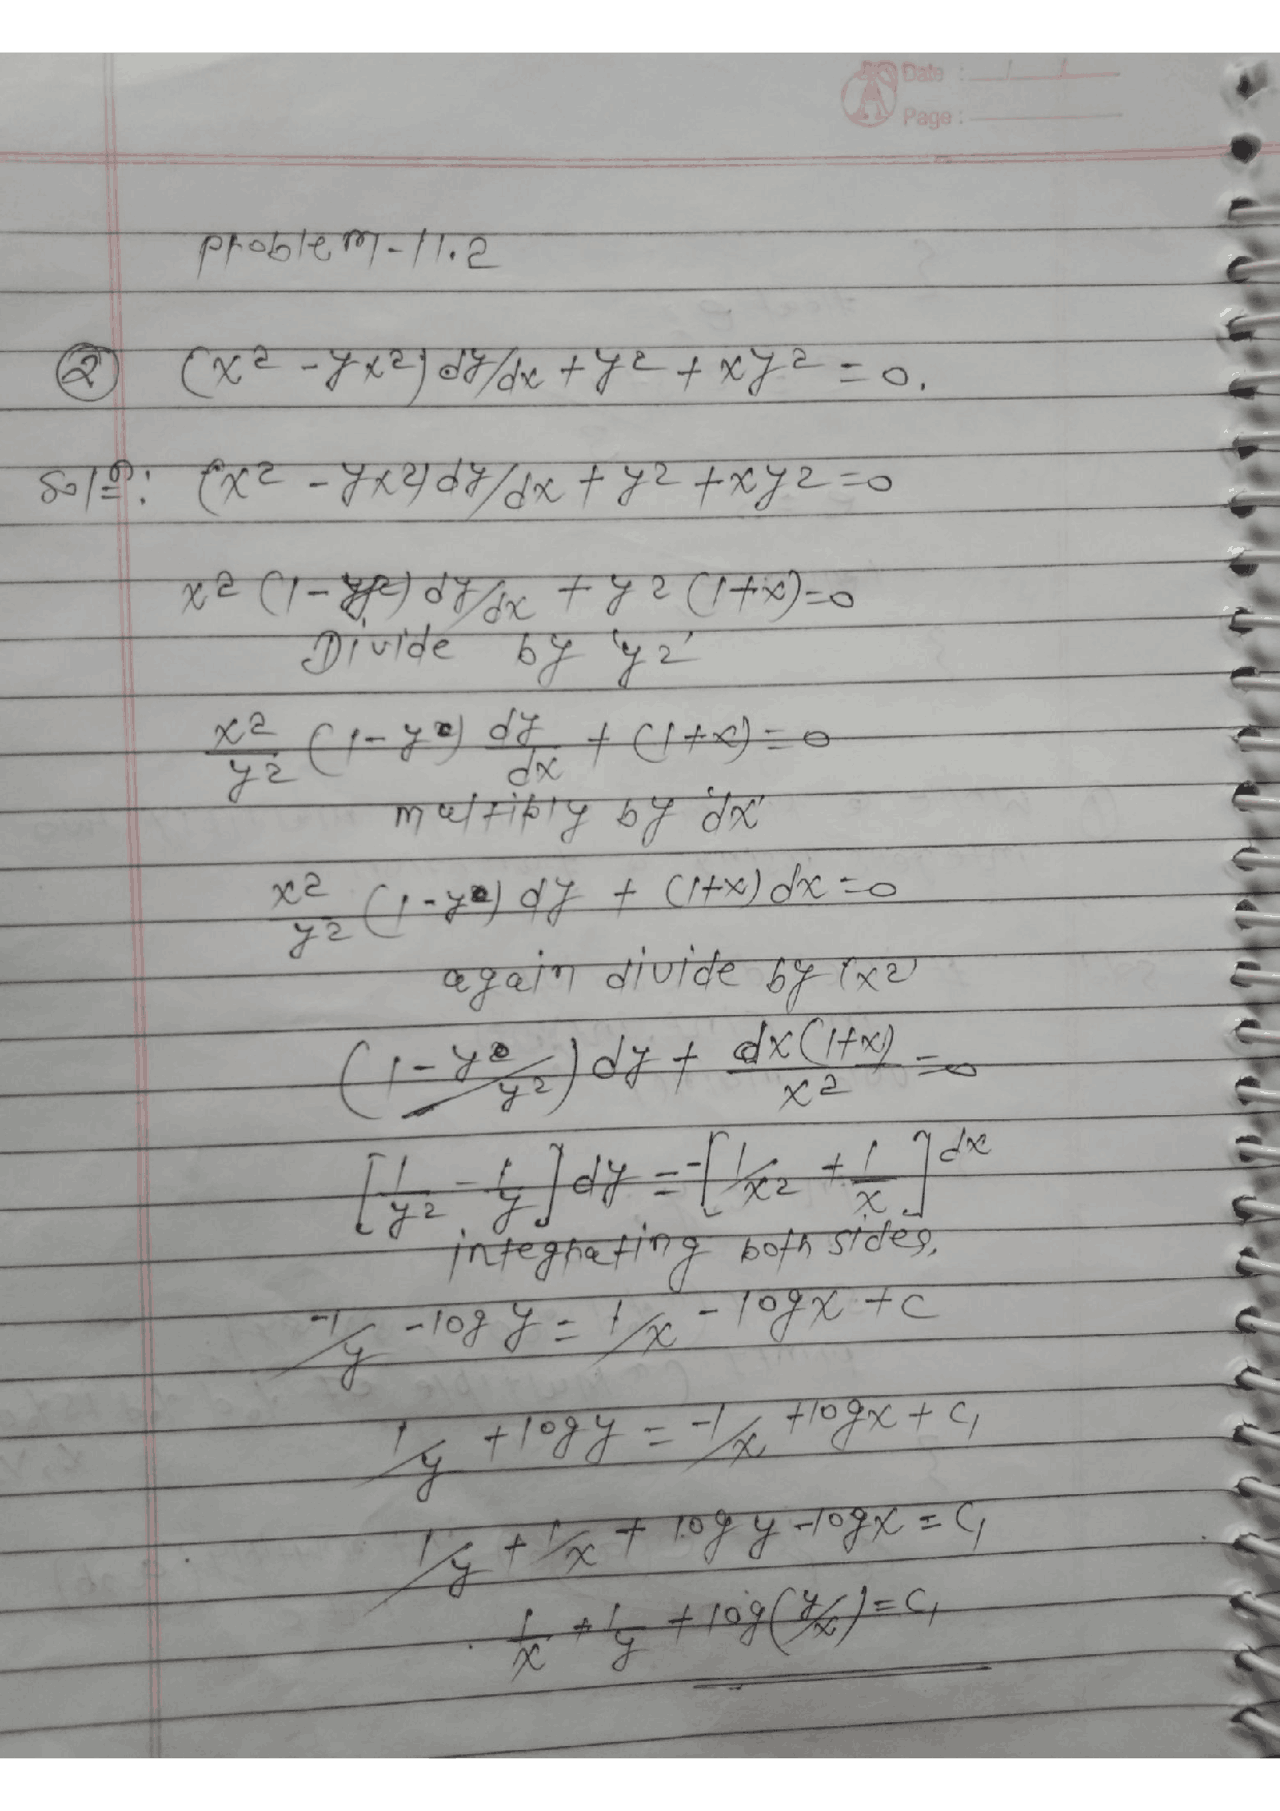 Date : / /
Page :
Problem-11.2
② (x² - yx²) dy/dx + y² + xy² = 0.
Solⁿ: (x² - yx²) dy/dx + y² + xy² = 0
x² (1-y) dy/dx + y² (1+x) = 0
Divide by 'y²'
x²/y² (1-y) dy/dx + (1+x) = 0
multiply by 'dx'
x²/y² (1-y) dy + (1+x) dx = 0
again divide by 'x²'
(1-y/y²) dy + dx(1+x)/x² = 0
[1/y² - 1/y] dy = -[1/x² + 1/x] dx
integrating both sides,
-1/y - log y = 1/x - log x + c
1/y + log y = -1/x + log x + c₁
1/y + 1/x + log y - log x = c₁
1/x + 1/y + log(y/x) = c₁